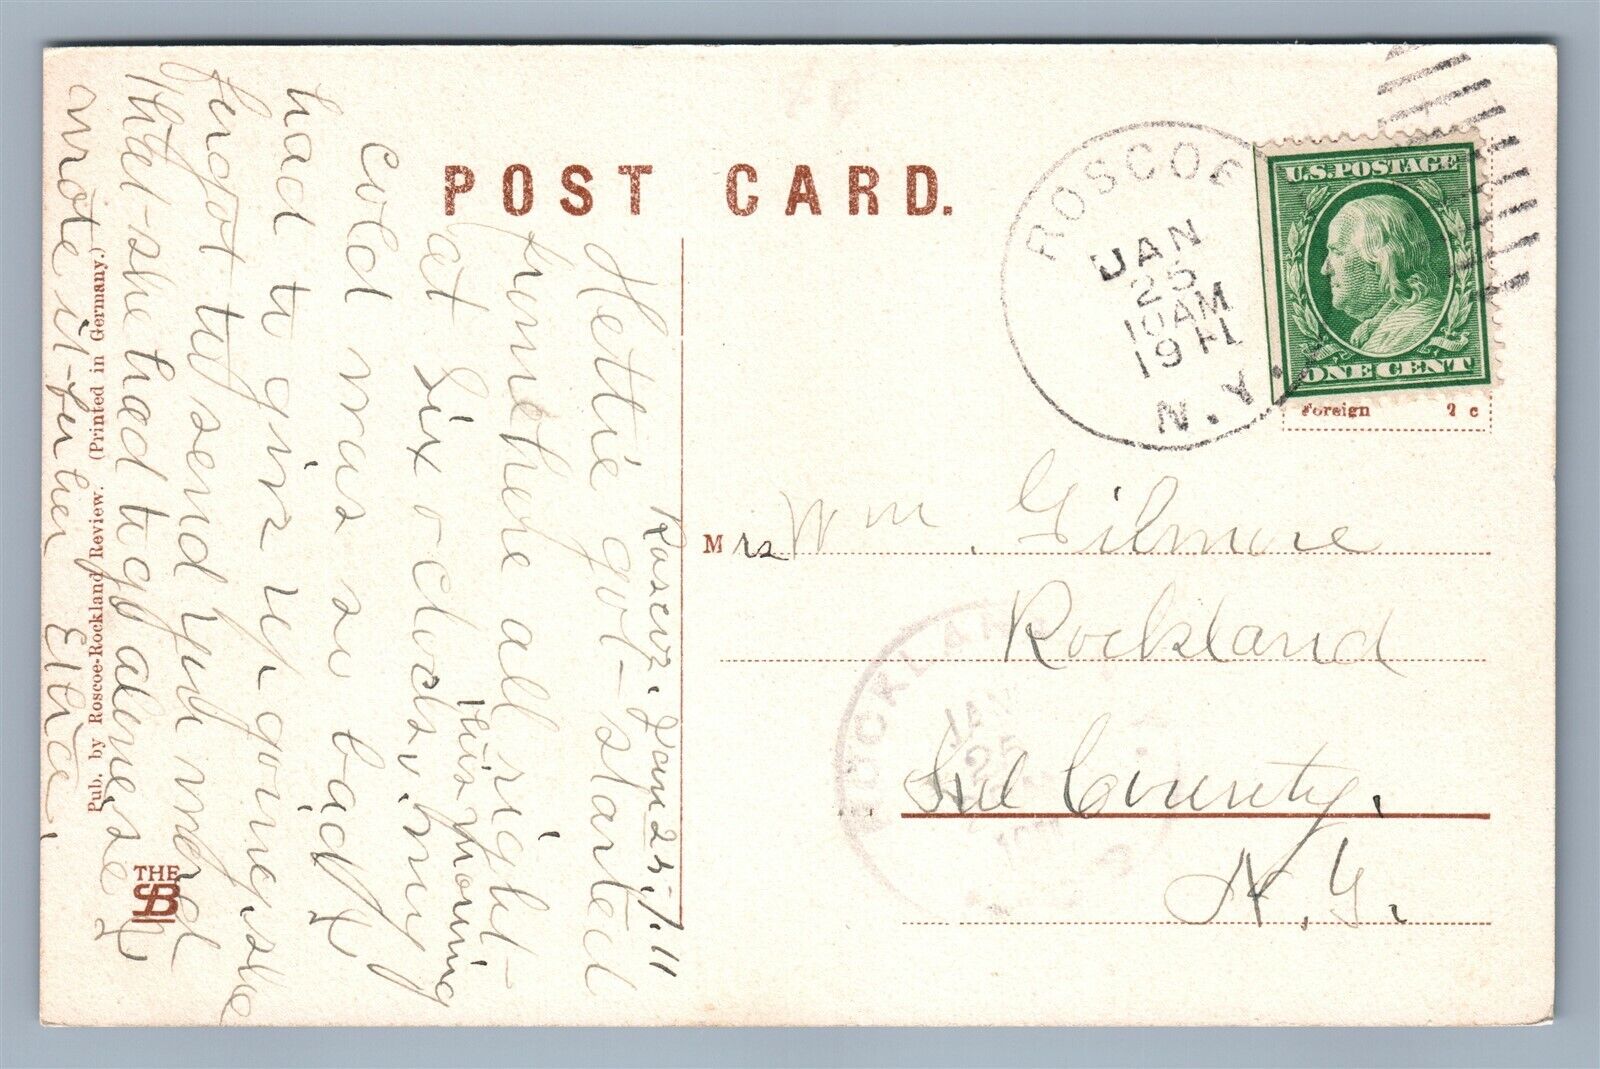 POST CARD.
ROSCOE
JAN
25
10 AM
1911
N.Y.
U.S. POSTAGE
ONE CENT
Foreign 2 c
Mrs Wm. Gilmore
Rockland
Sul County.
N.Y.
ROCKLAND
JAN
25
Roscoe. Jan 25, 1911
Hettie got started
from here all right
at six o clock this morning
my
cold was so bad I
had to give up going she
forgot to send you word
that she had to go alone so I
wrote it for her
Pub. by Roscoe-Rockland Review. (Printed in Germany.)
THE
SB